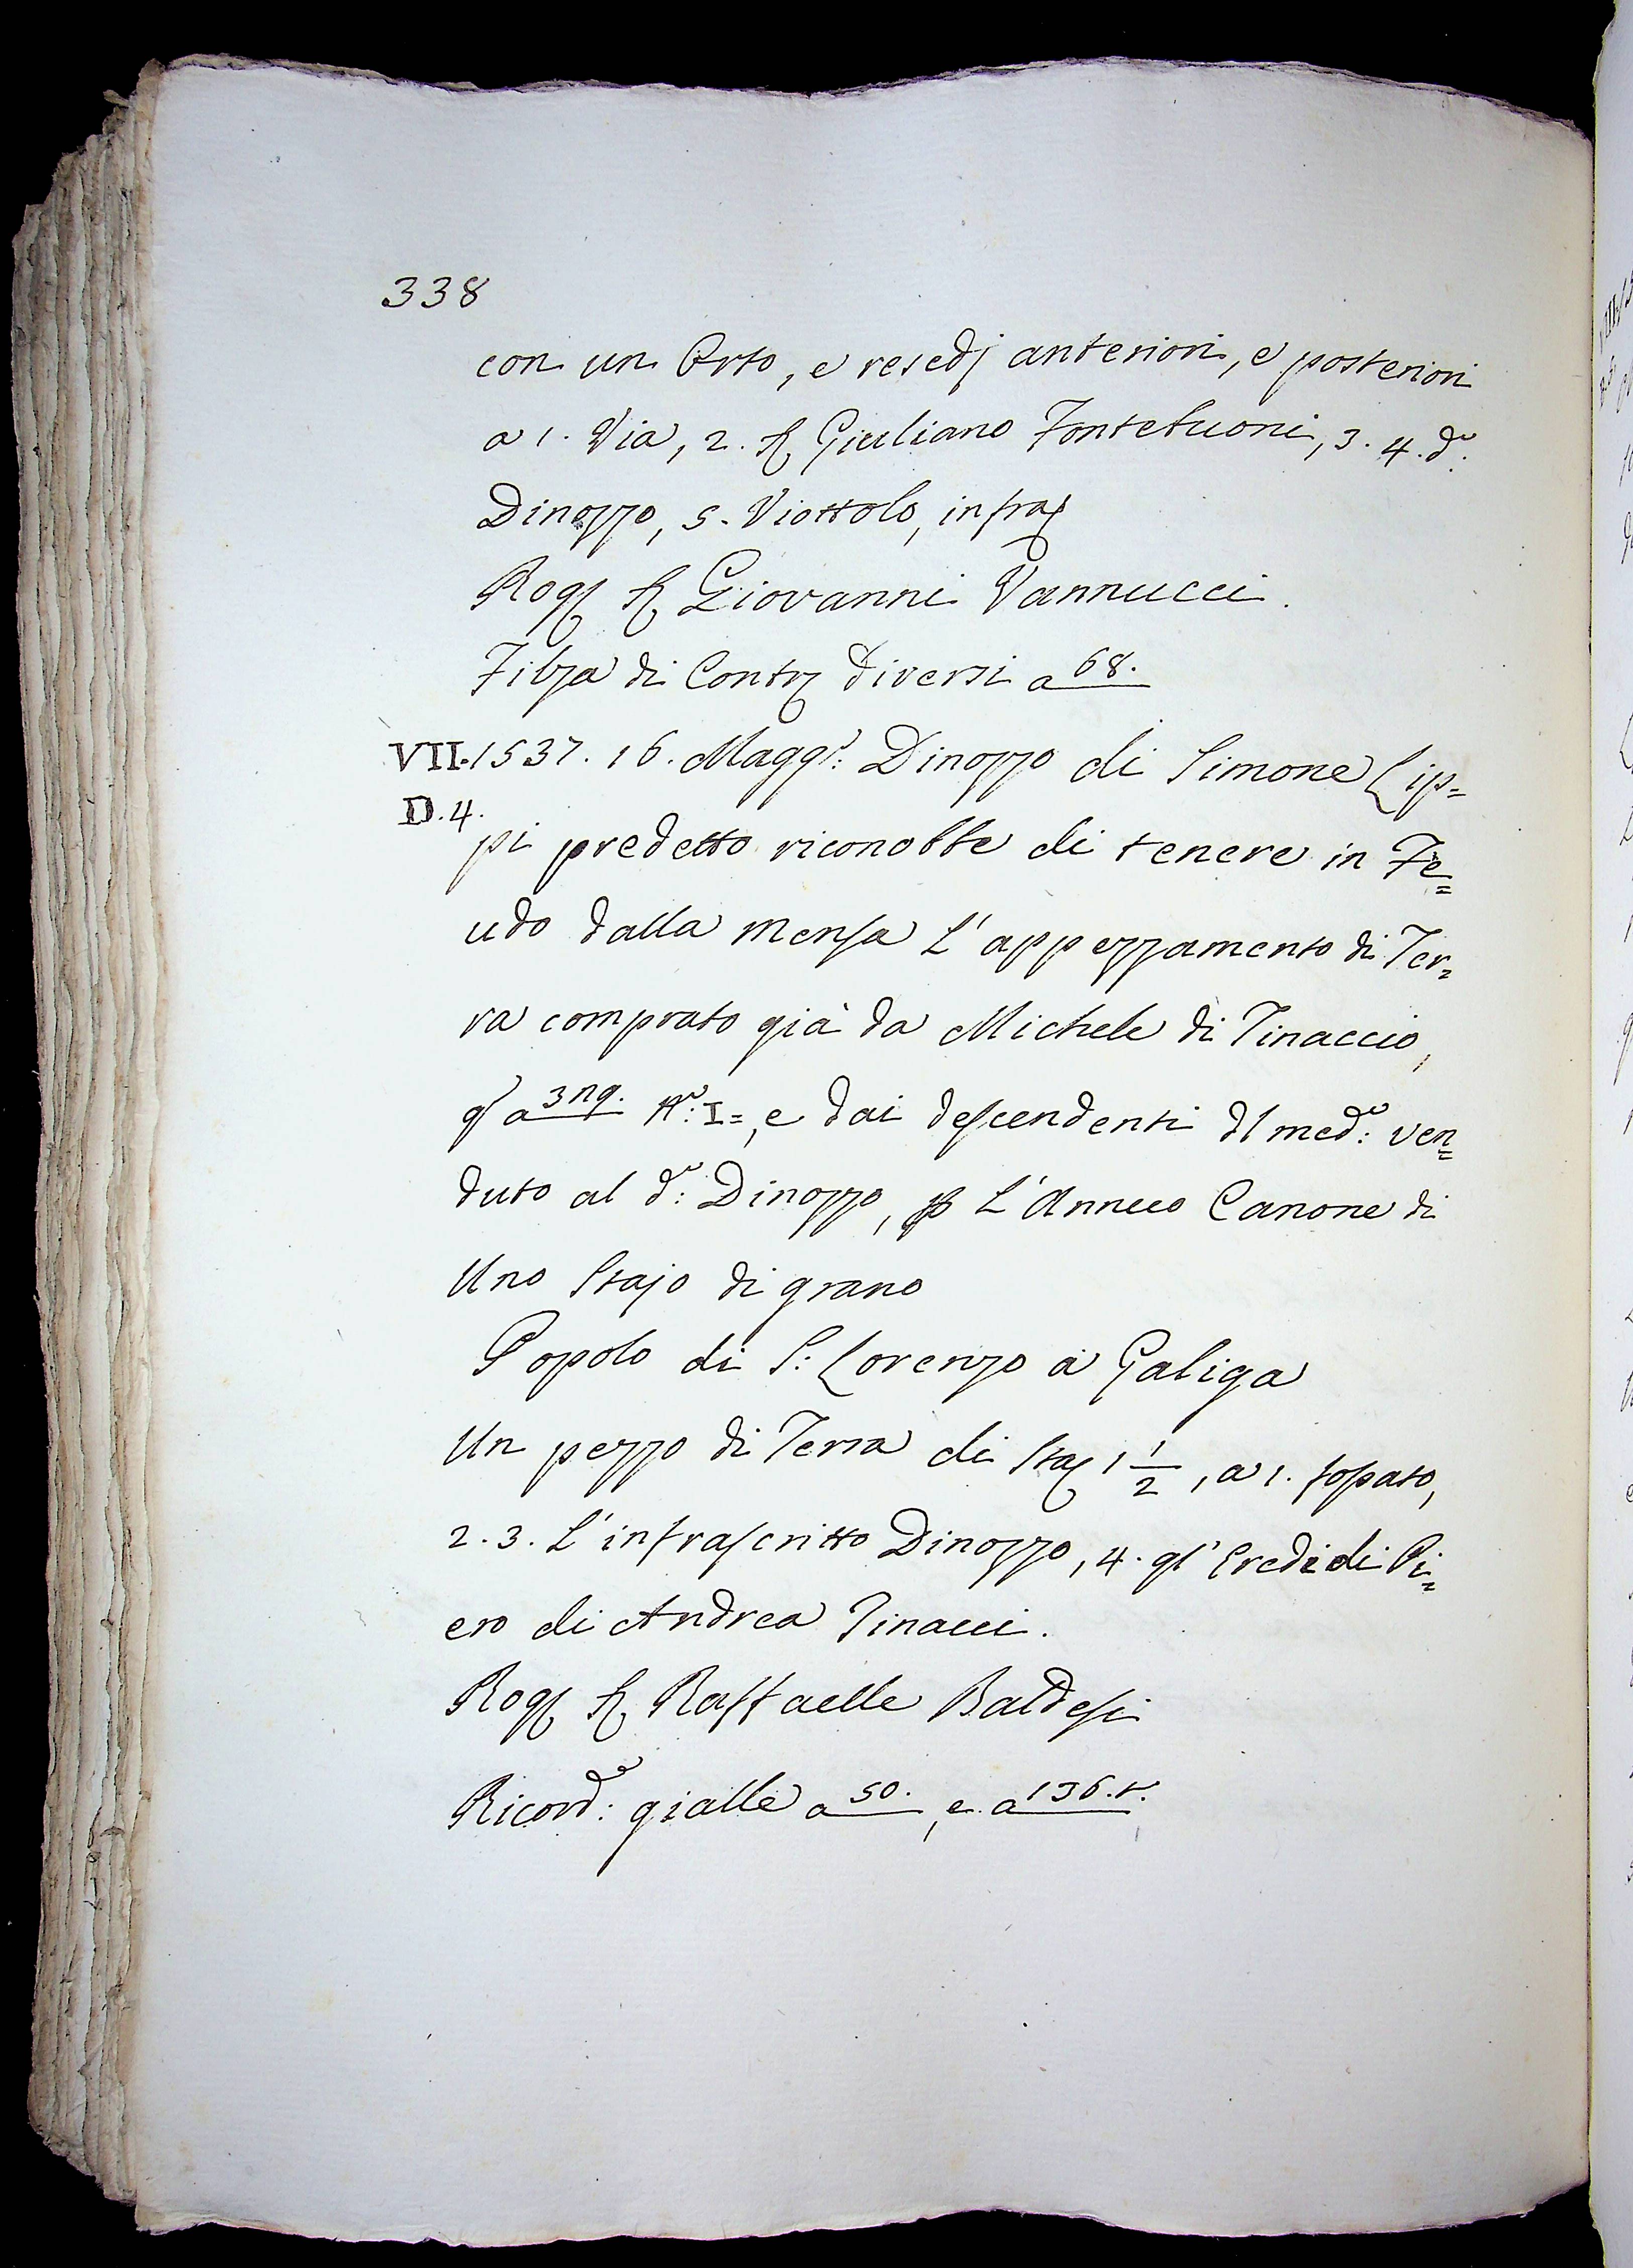 338
con un Orto, e resedj anteriori, e posteriori
a 1. Via, 2. Sr Giuliano Fontebuoni, 3. 4. do:
Dinozzo, 5. Viottolo, infra
Rog Sr Giovanni Vannucci.
Filza di Contr diversi a 68.
VII. 1537. 16. Maggo: Dinozzo di Simone Lip=
D. 4.
pi predetto riconobbe di tenere in Fe=
udo dalla Mensa L'appezzamento di Ter=
ra comprato già da Michele di Tinaccio,
a No: I=, e dai descendenti dl medo: ven=
duto al do: Dinozzo, p L'Annuo Canone di
Uno Stajo di grano
Popolo di S: Lorenzo a Galiga
Un pezzo di Terra di Sta 1 1/2, a 1. fossato,
2. 3. L'infrascritto Dinozzo, 4. gl' Eredi di Pi=
ero di Andrea Tinacci.
Rog Sr Raffaelle Baldesi
Ricordo: gialle a 50., e a 136. t.